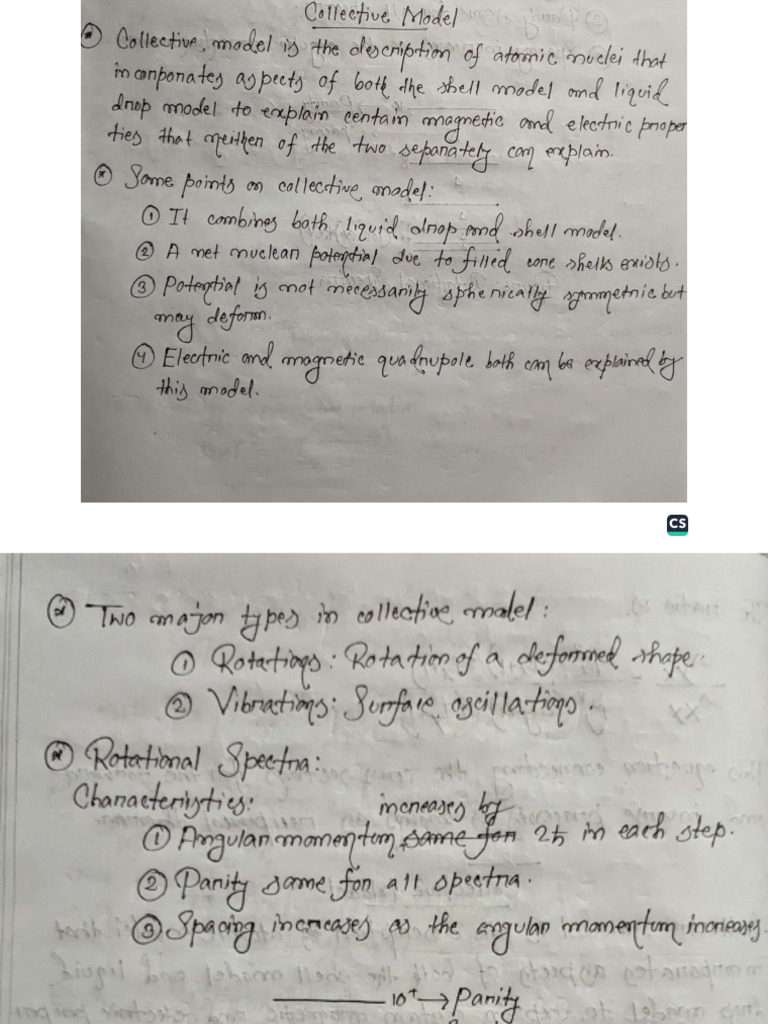 Collective Model
* Collective model is the description of atomic nuclei that
incorporates aspects of both the shell model and liquid
drop model to explain certain magnetic and electric proper
ties that neither of the two separately can explain.
* Some points on collective model:
① It combines both liquid drop and shell model.
② A net nuclear potential due to filled core shells exists.
③ Potential is not necessarily spherically symmetric but
may deform.
④ Electric and magnetic quadrupole both can be explained by
this model.
CS
* Two major types in collective model:
① Rotations: Rotation of a deformed shape.
② Vibrations: Surface oscillations.
* Rotational Spectra:
Characteristics:
increases by
① Angular momentum same for 2ħ in each step.
② Parity same for all spectra.
③ Spacing increases as the angular momentum increases.
10⁺ → Parity